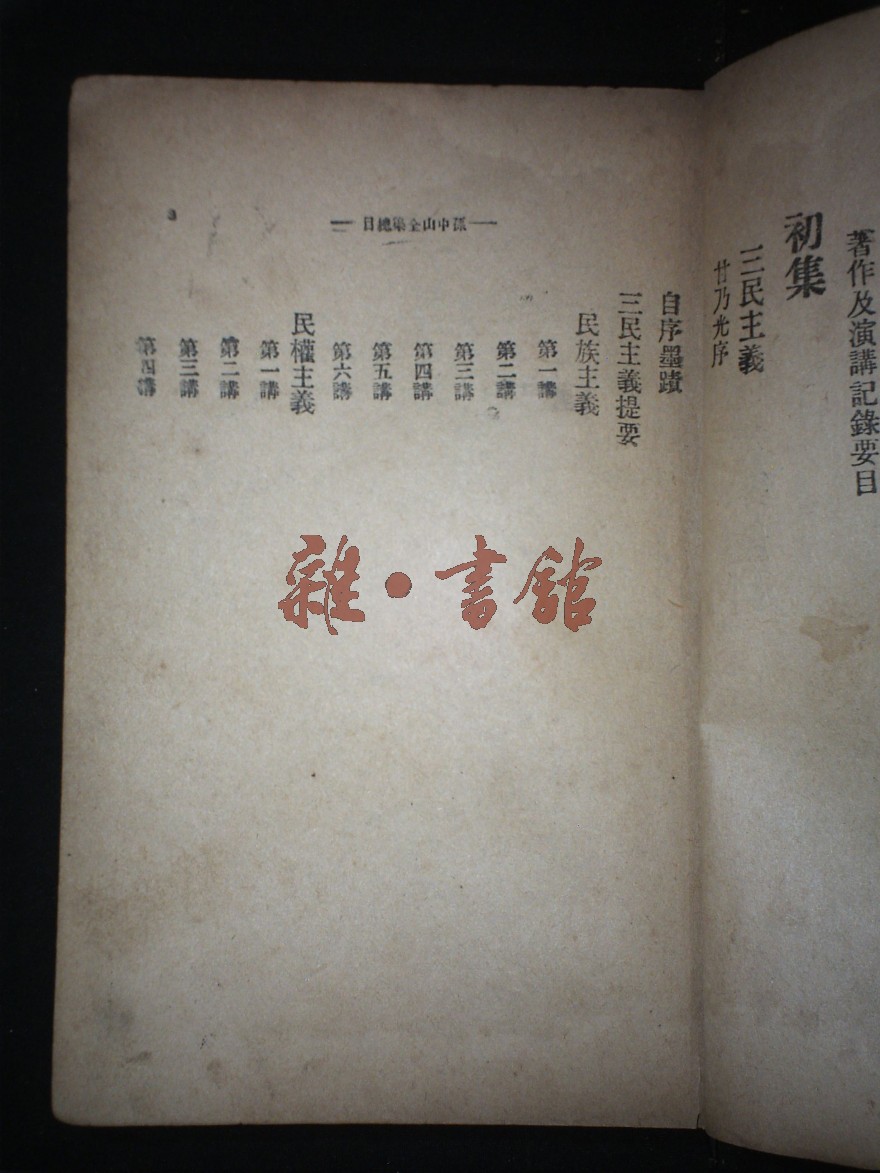 著作及演講記錄要目
初集
三民主義
甘乃光序
孫中山全集總目
自序墨蹟
三民主義提要
民族主義
第一講
第二講
第三講
第四講
第五講
第六講
民權主義
第一講
第二講
第三講
第四講
雜·書館